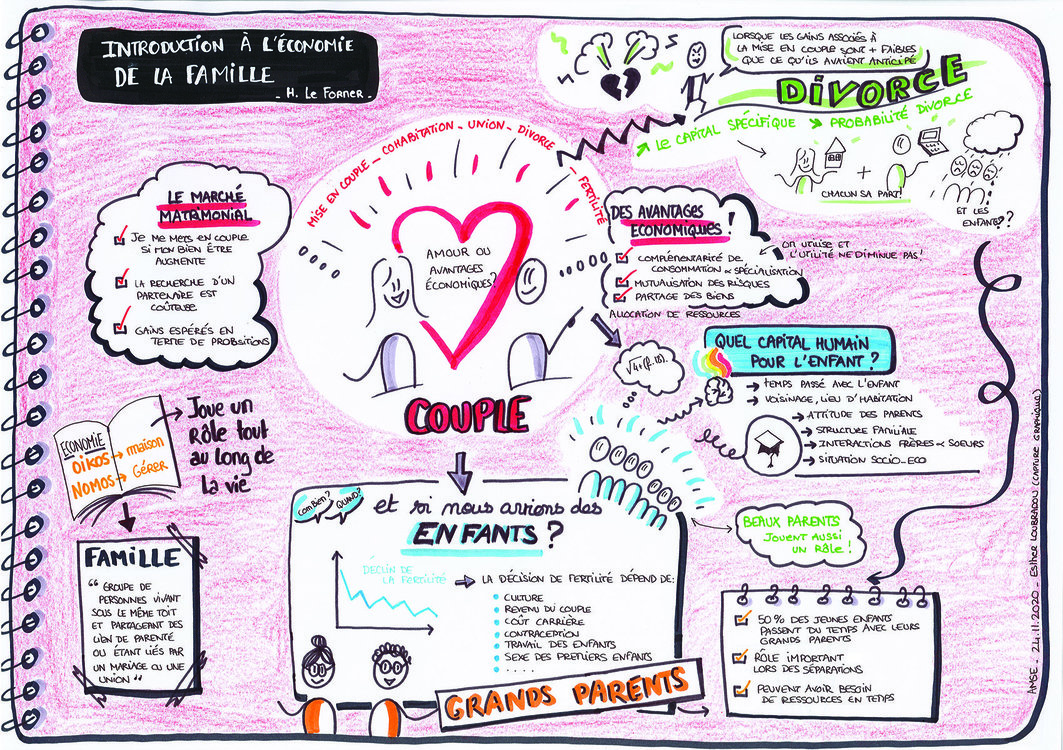 INTRODUCTION À L'ÉCONOMIE
DE LA FAMILLE
_ H. Le Forner _
LORSQUE LES GAINS ASSOCIÉS À
LA MISE EN COUPLE SONT + FAIBLES
QUE CE QU'ILS AVAIENT ANTICIPÉ
DIVORCE
↗ LE CAPITAL SPÉCIFIQUE ↘ PROBABILITÉ DIVORCE
+
CHACUN SA PART!
ET LES
ENFANTS??
MISE EN COUPLE _ COHABITATION _ UNION _ DIVORCE _ FERTILITÉ
AMOUR OU
AVANTAGES
ÉCONOMIQUES?
COUPLE
LE MARCHÉ
MATRIMONIAL
JE ME METS EN COUPLE
SI MON BIEN ÊTRE
AUGMENTE
LA RECHERCHE D'UN
PARTENAIRE EST
COÛTEUSE
GAINS ESPÉRÉS EN
TERME DE PROBSITIONS
DES AVANTAGES
ECONOMIQUES!
COMPLÉMENTARITÉ DE
CONSOMMATION & SPÉCIALISATION
MUTUALISATION DES RISQUES
PARTAGE DES BIENS
ALLOCATION DE RESSOURCES
ON UTILISE ET
L'UTILITÉ NE DIMINUE PAS!
QUEL CAPITAL HUMAIN
POUR L'ENFANT ?
→ TEMPS PASSÉ AVEC L'ENFANT
→ VOISINAGE, LIEU D'HABITATION
→ ATTITUDE DES PARENTS
→ STRUCTURE FAMILIALE
→ INTERACTIONS FRÈRES & SOEURS
→ SITUATION SOCIO_ECO
ECONOMIE
OIKOS → maison
NOMOS → GÉRER
Joue un
Rôle tout
au long de
la vie
FAMILLE
“ GROUPE DE
PERSONNES VIVANT
SOUS LE MÊME TOIT
ET PARTAGEANT DES
LIEN DE PARENTÉ
OU ÉTANT LIÉS PAR
UN MARIAGE OU UNE
UNION “
COMBIEN?
QUAND?
et si nous avions des
ENFANTS ?
DÉCLIN DE
LA FERTILITÉ
→ LA DÉCISION DE FERTILITÉ DÉPEND DE:
• CULTURE
• REVENU DU COUPLE
• COÛT CARRIÈRE
• CONTRACEPTION
• TRAVAIL DES ENFANTS
• SEXE DES PREMIERS ENFANTS
• ....
BEAUX PARENTS
JOUENT AUSSI
UN RÔLE!
GRANDS PARENTS
50% DES JEUNES ENFANTS
PASSENT DU TEMPS AVEC LEURS
GRANDS PARENTS
RÔLE IMPORTANT
LORS DES SÉPARATIONS
PEUVENT AVOIR BESOIN
DE RESSOURCES EN TEMPS
AMSE _ 24.11.2020 _ Esther LOUBRADOU (CAPTURE GRAPHIQUE)